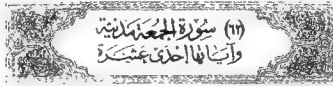 (٦٢) سُورَة الجُمعَة مَدنيَّة
وَآيَاتُها اِحْدىٰ عَشِرَة